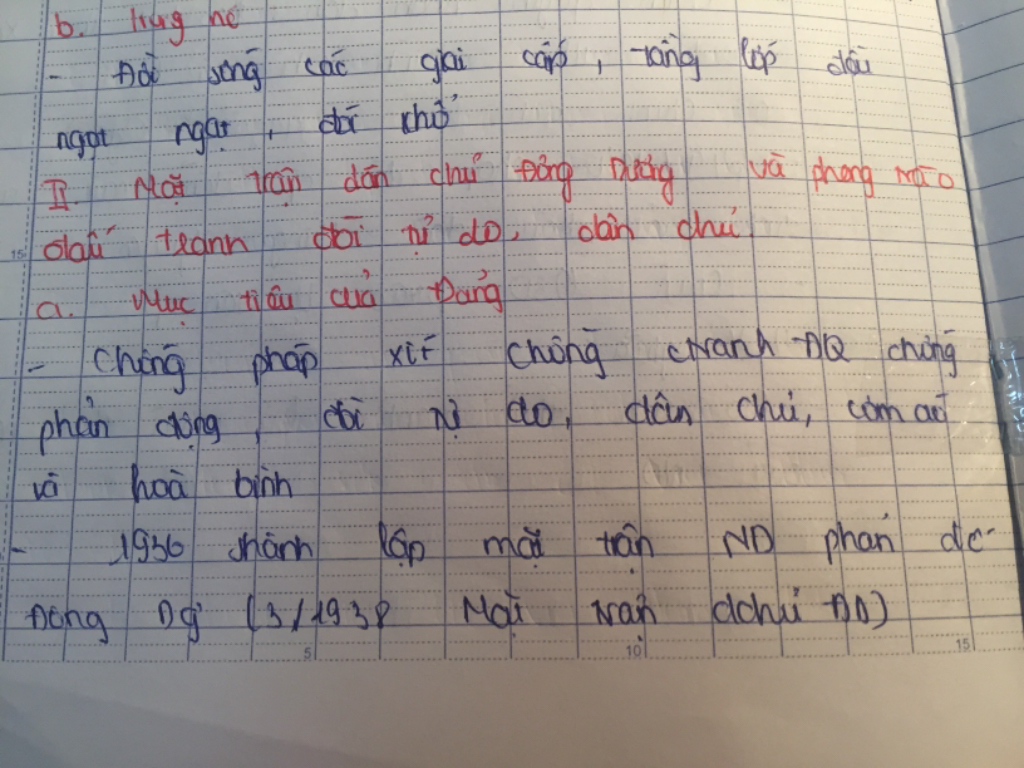 b. Trug nc
- Đời sống các giai cấp, tầng lớp đều
ngọt ngạt, đói khổ
II. Mặt trận dân chủ Đông Dương và phong trào
đấu tranh đòi tự do, dân chủ
a. Mục tiêu của Đảng
- Chống pháp xít chống ctranh ĐQ chống
phản động, đòi tự do, dân chủ, cơm áo
và hoà bình
- 1936 thành lập mặt trận ND phản đế
Đông Dg (3/1938 Mặt trận dchủ ĐD)